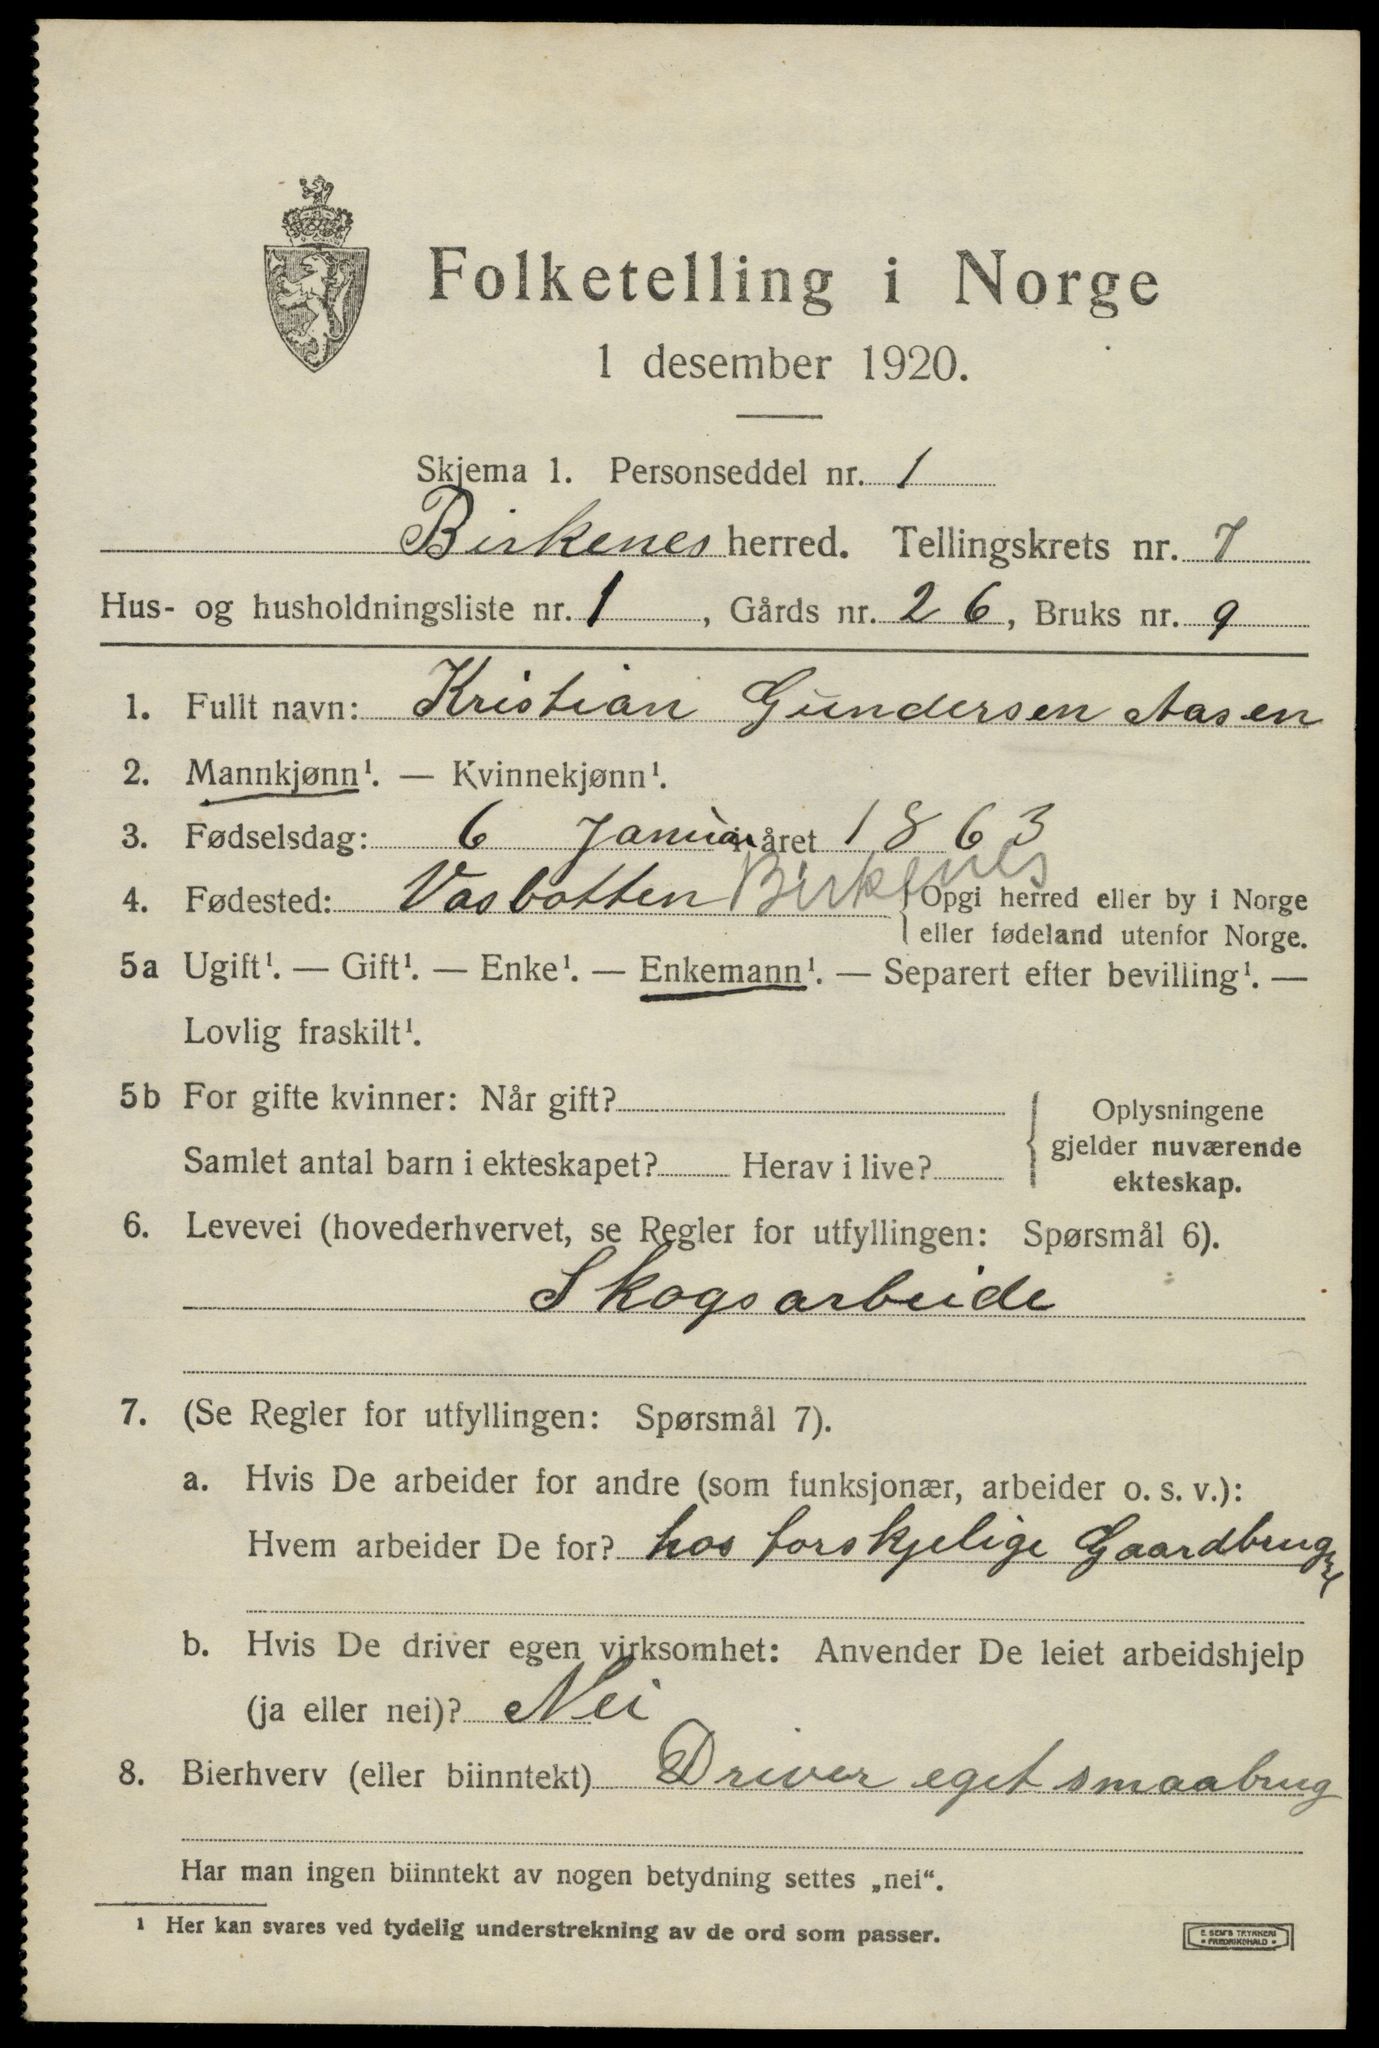 Folketelling i Norge
1 desember 1920.
Skjema 1. Personseddel nr. 1
Birkenes herred. Tellingskrets nr. 7
Hus- og husholdningsliste nr. 1, Gårds nr. 26, Bruks nr. 9
1. Fullt navn: Kristian Gundersen Aasen
2. Mannkjønn¹. — Kvinnekjønn¹.
3. Fødselsdag: 6 Januar året 1863
4. Fødested: Vasbotten Birkenes { Opgi herred eller by i Norge
eller fødeland utenfor Norge.
5a Ugift¹. — Gift¹. — Enke¹. — Enkemann¹. — Separert efter bevilling¹. —
Lovlig fraskilt¹.
5b For gifte kvinner: Når gift? { Oplysningene
gjelder nuværende
Samlet antal barn i ekteskapet? Herav i live?
ekteskap.
6. Levevei (hovederhvervet, se Regler for utfyllingen: Spørsmål 6).
Skogsarbeide
7. (Se Regler for utfyllingen: Spørsmål 7).
a. Hvis De arbeider for andre (som funksjonær, arbeider o. s. v.):
Hvem arbeider De for? hos forskjelige Gaardbruger
b. Hvis De driver egen virksomhet: Anvender De leiet arbeidshjelp
(ja eller nei)? Nei
8. Bierhverv (eller biinntekt) Driver eget smaabrug
Har man ingen biinntekt av nogen betydning settes „nei“.
1 Her kan svares ved tydelig understrekning av de ord som passer.
E. SEM'S TRYKKERI
FREDRIKSHALD